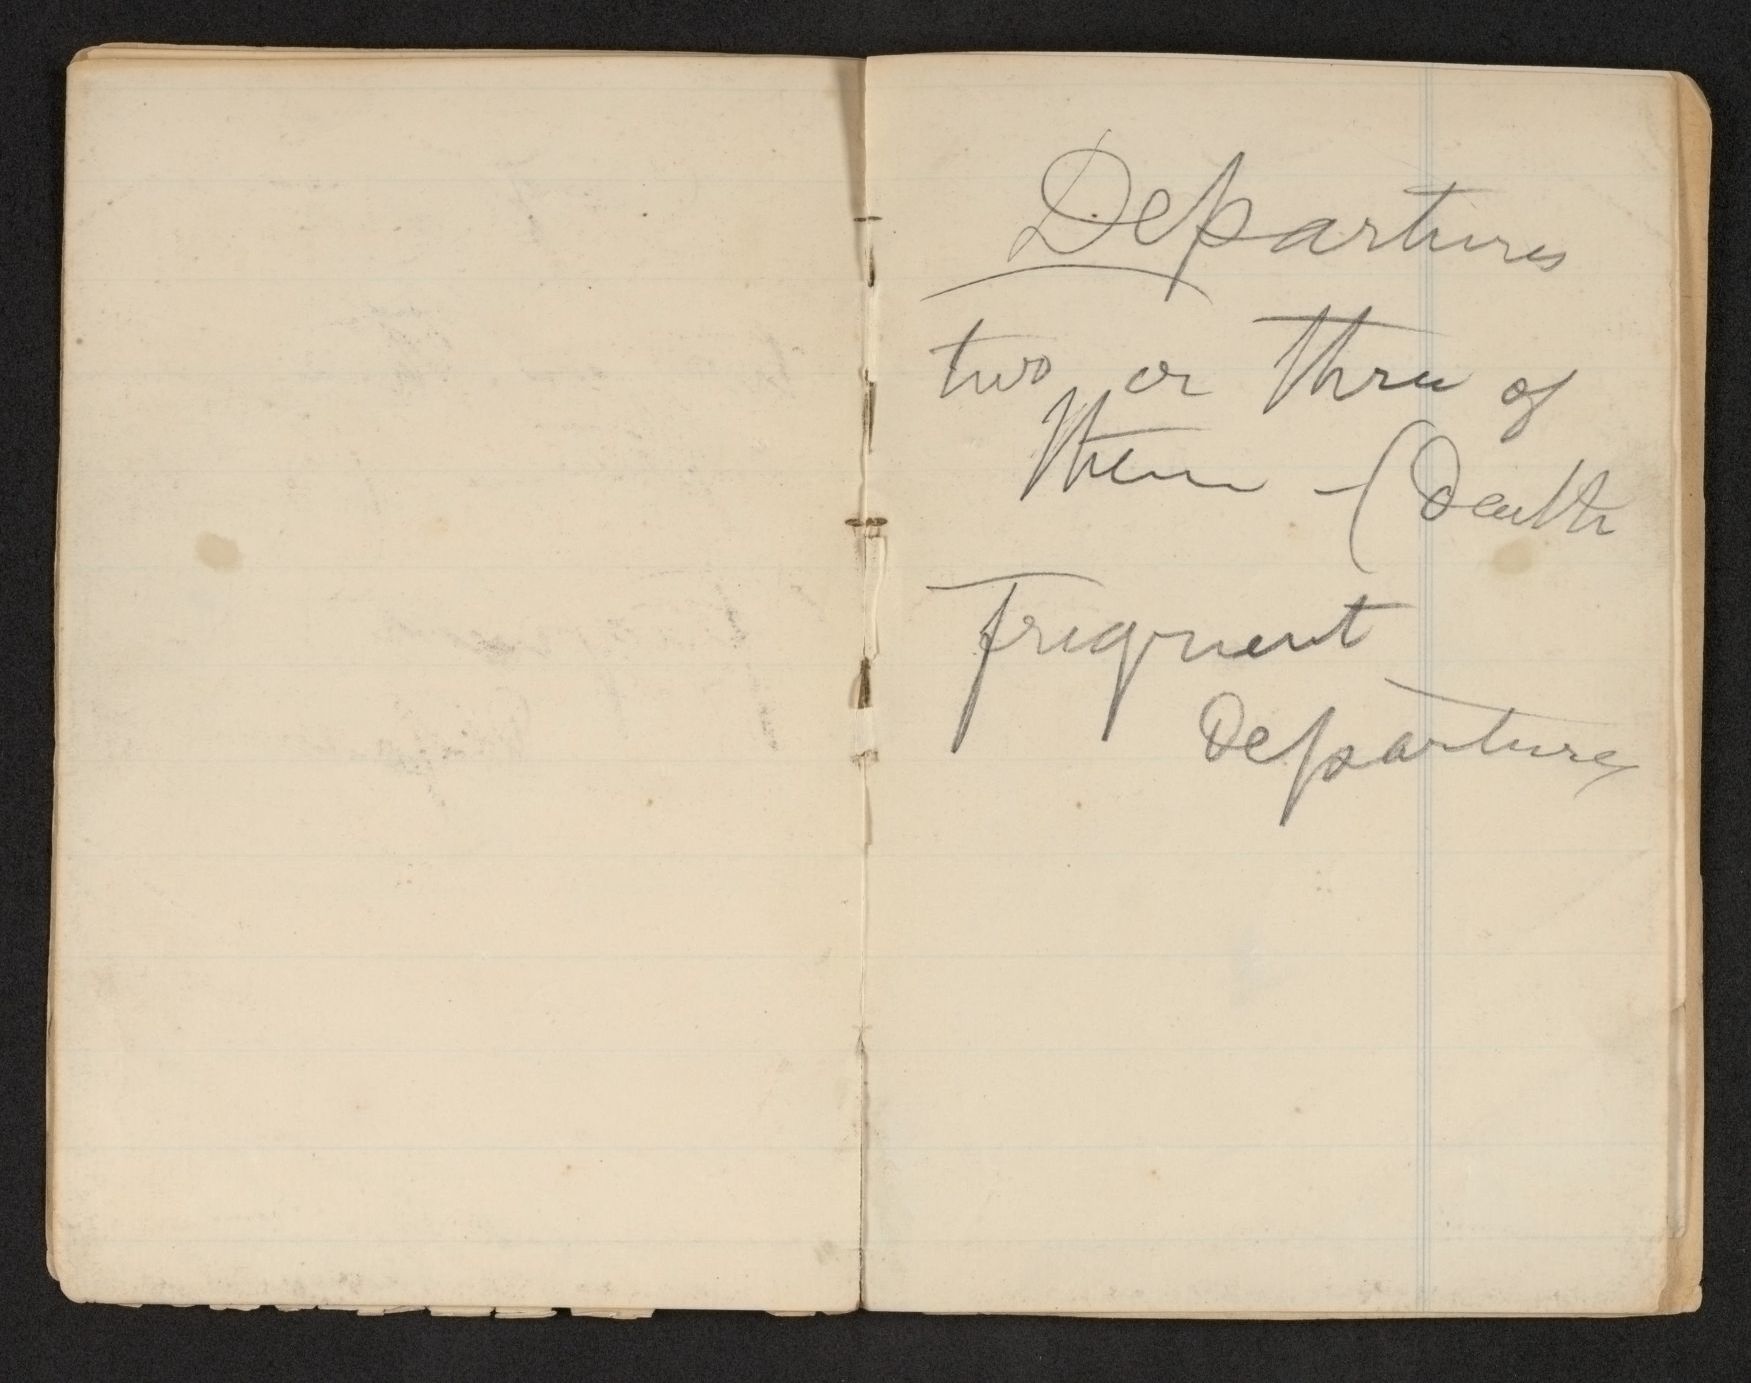 Departures
two or three of
them – (Death
Frequent
Departures